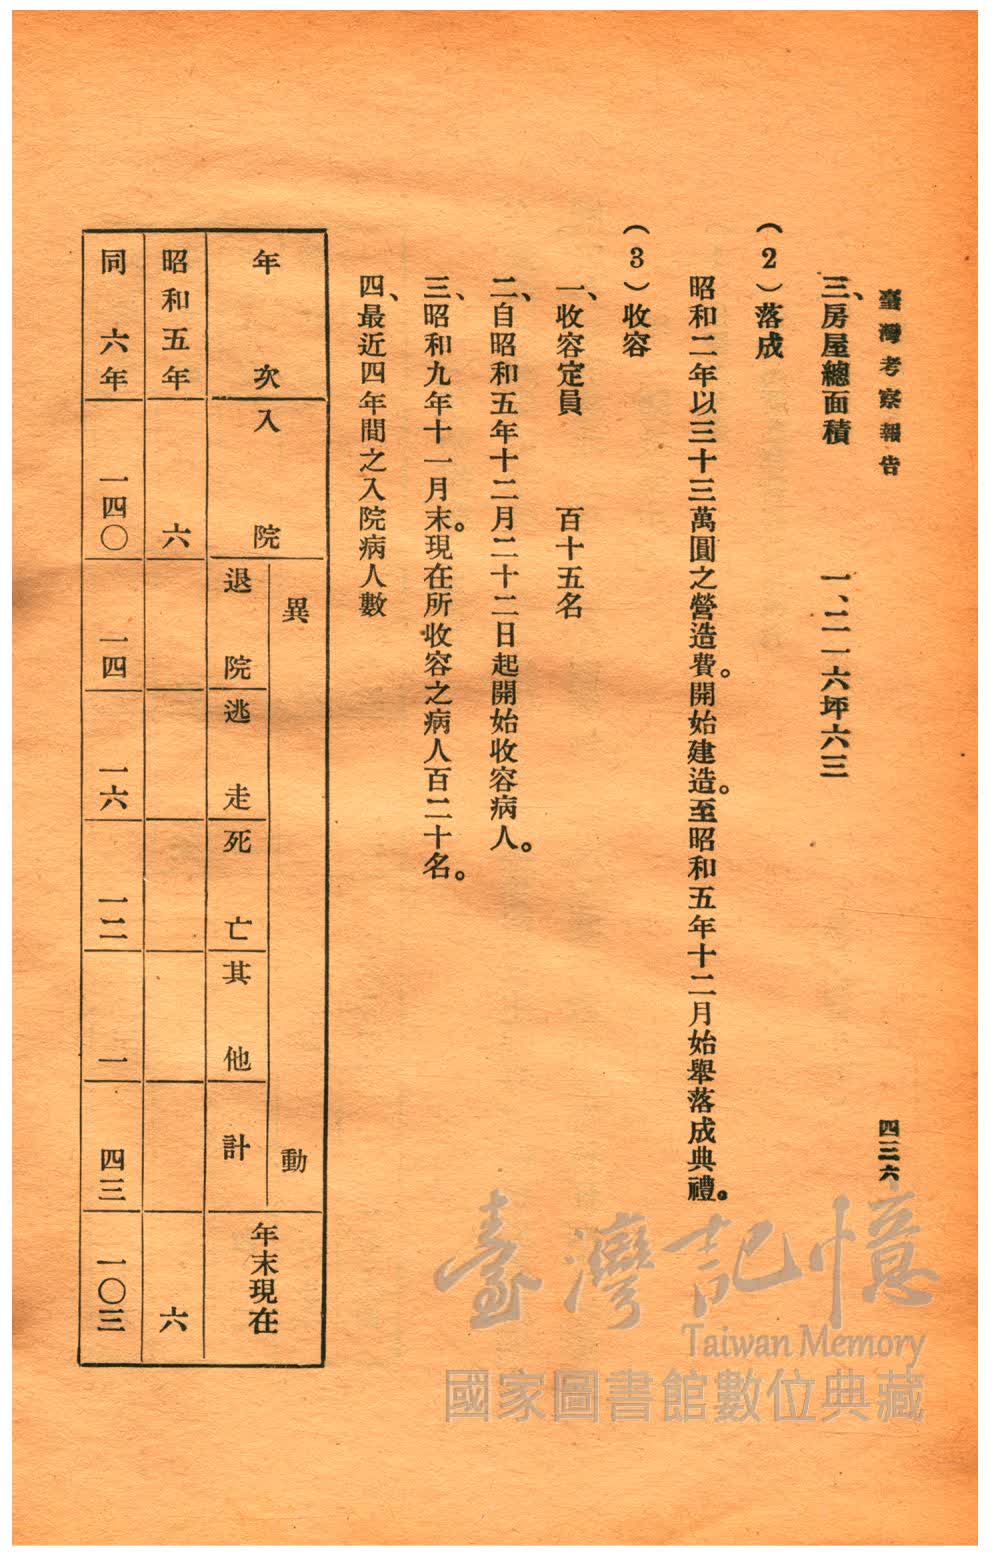 臺灣考察報告
四三六
三、房屋總面積　一、二一六坪六三
(2)落成
昭和二年以三十三萬圓之營造費。開始建造。至昭和五年十二月始舉落成典禮。
(3)收容
一、收容定員　百十五名
二、自昭和五年十二月二十二日起開始收容病人。
三、昭和九年十一月末。現在所收容之病人百二十名。
四、最近四年間之入院病人數
年次　入院　異動　退院　逃走　死亡　其他　計　年末現在
昭和五年　六　六
同六年　一四〇　一四　一六　一二　一　四三　一〇三
臺灣記憶
Taiwan Memory
國家圖書館數位典藏